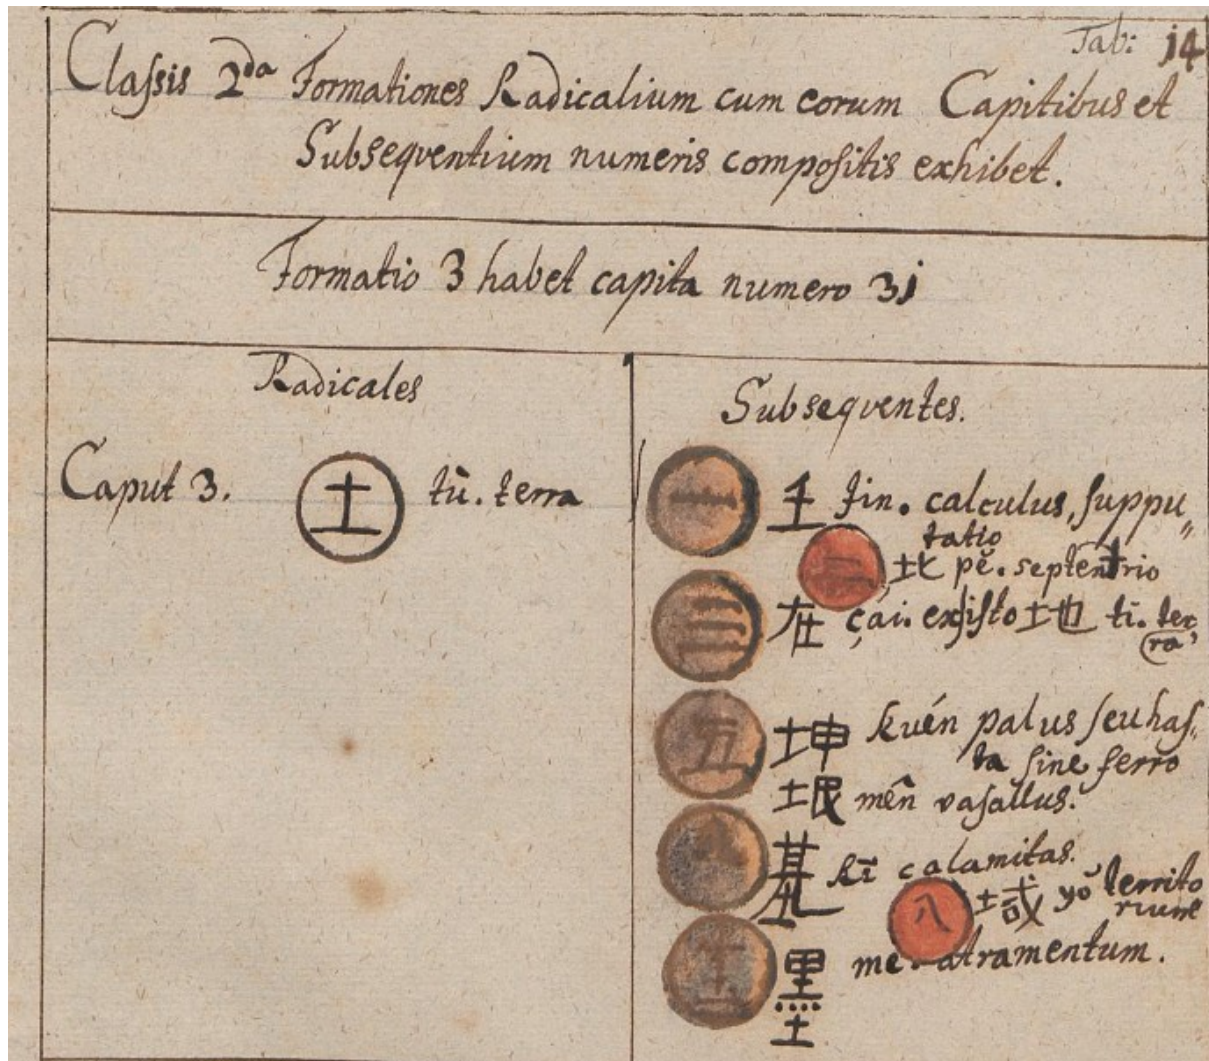 Tab: 14
Classis 2da Formationes Radicalium cum eorum Capitibus et
Subseqventium numeris compositis exhibet.
Formatio 3 habet capita numero 31
Radicales
Subseqventes.
Caput 3. 土 tù. terra
一 𡈼 tin. calculus, suppu„
tatio
二 土比 pĕ. septentrio
三 在 çái. existo 地 tí. ter
ra,
五 坤 kuén palus seu has„
ta sine ferro
垊 mên vasallus.
kī calamitas.
八 域 yŏ territo
rium
墨 me atramentum.